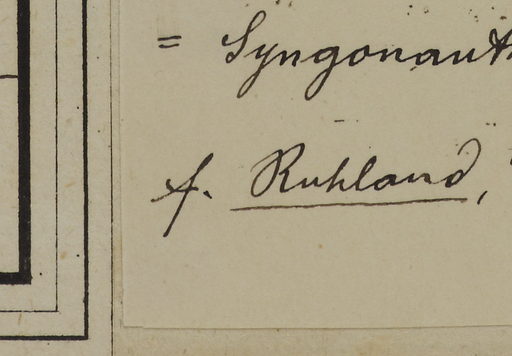 = Syngonauth
f. Ruhland,